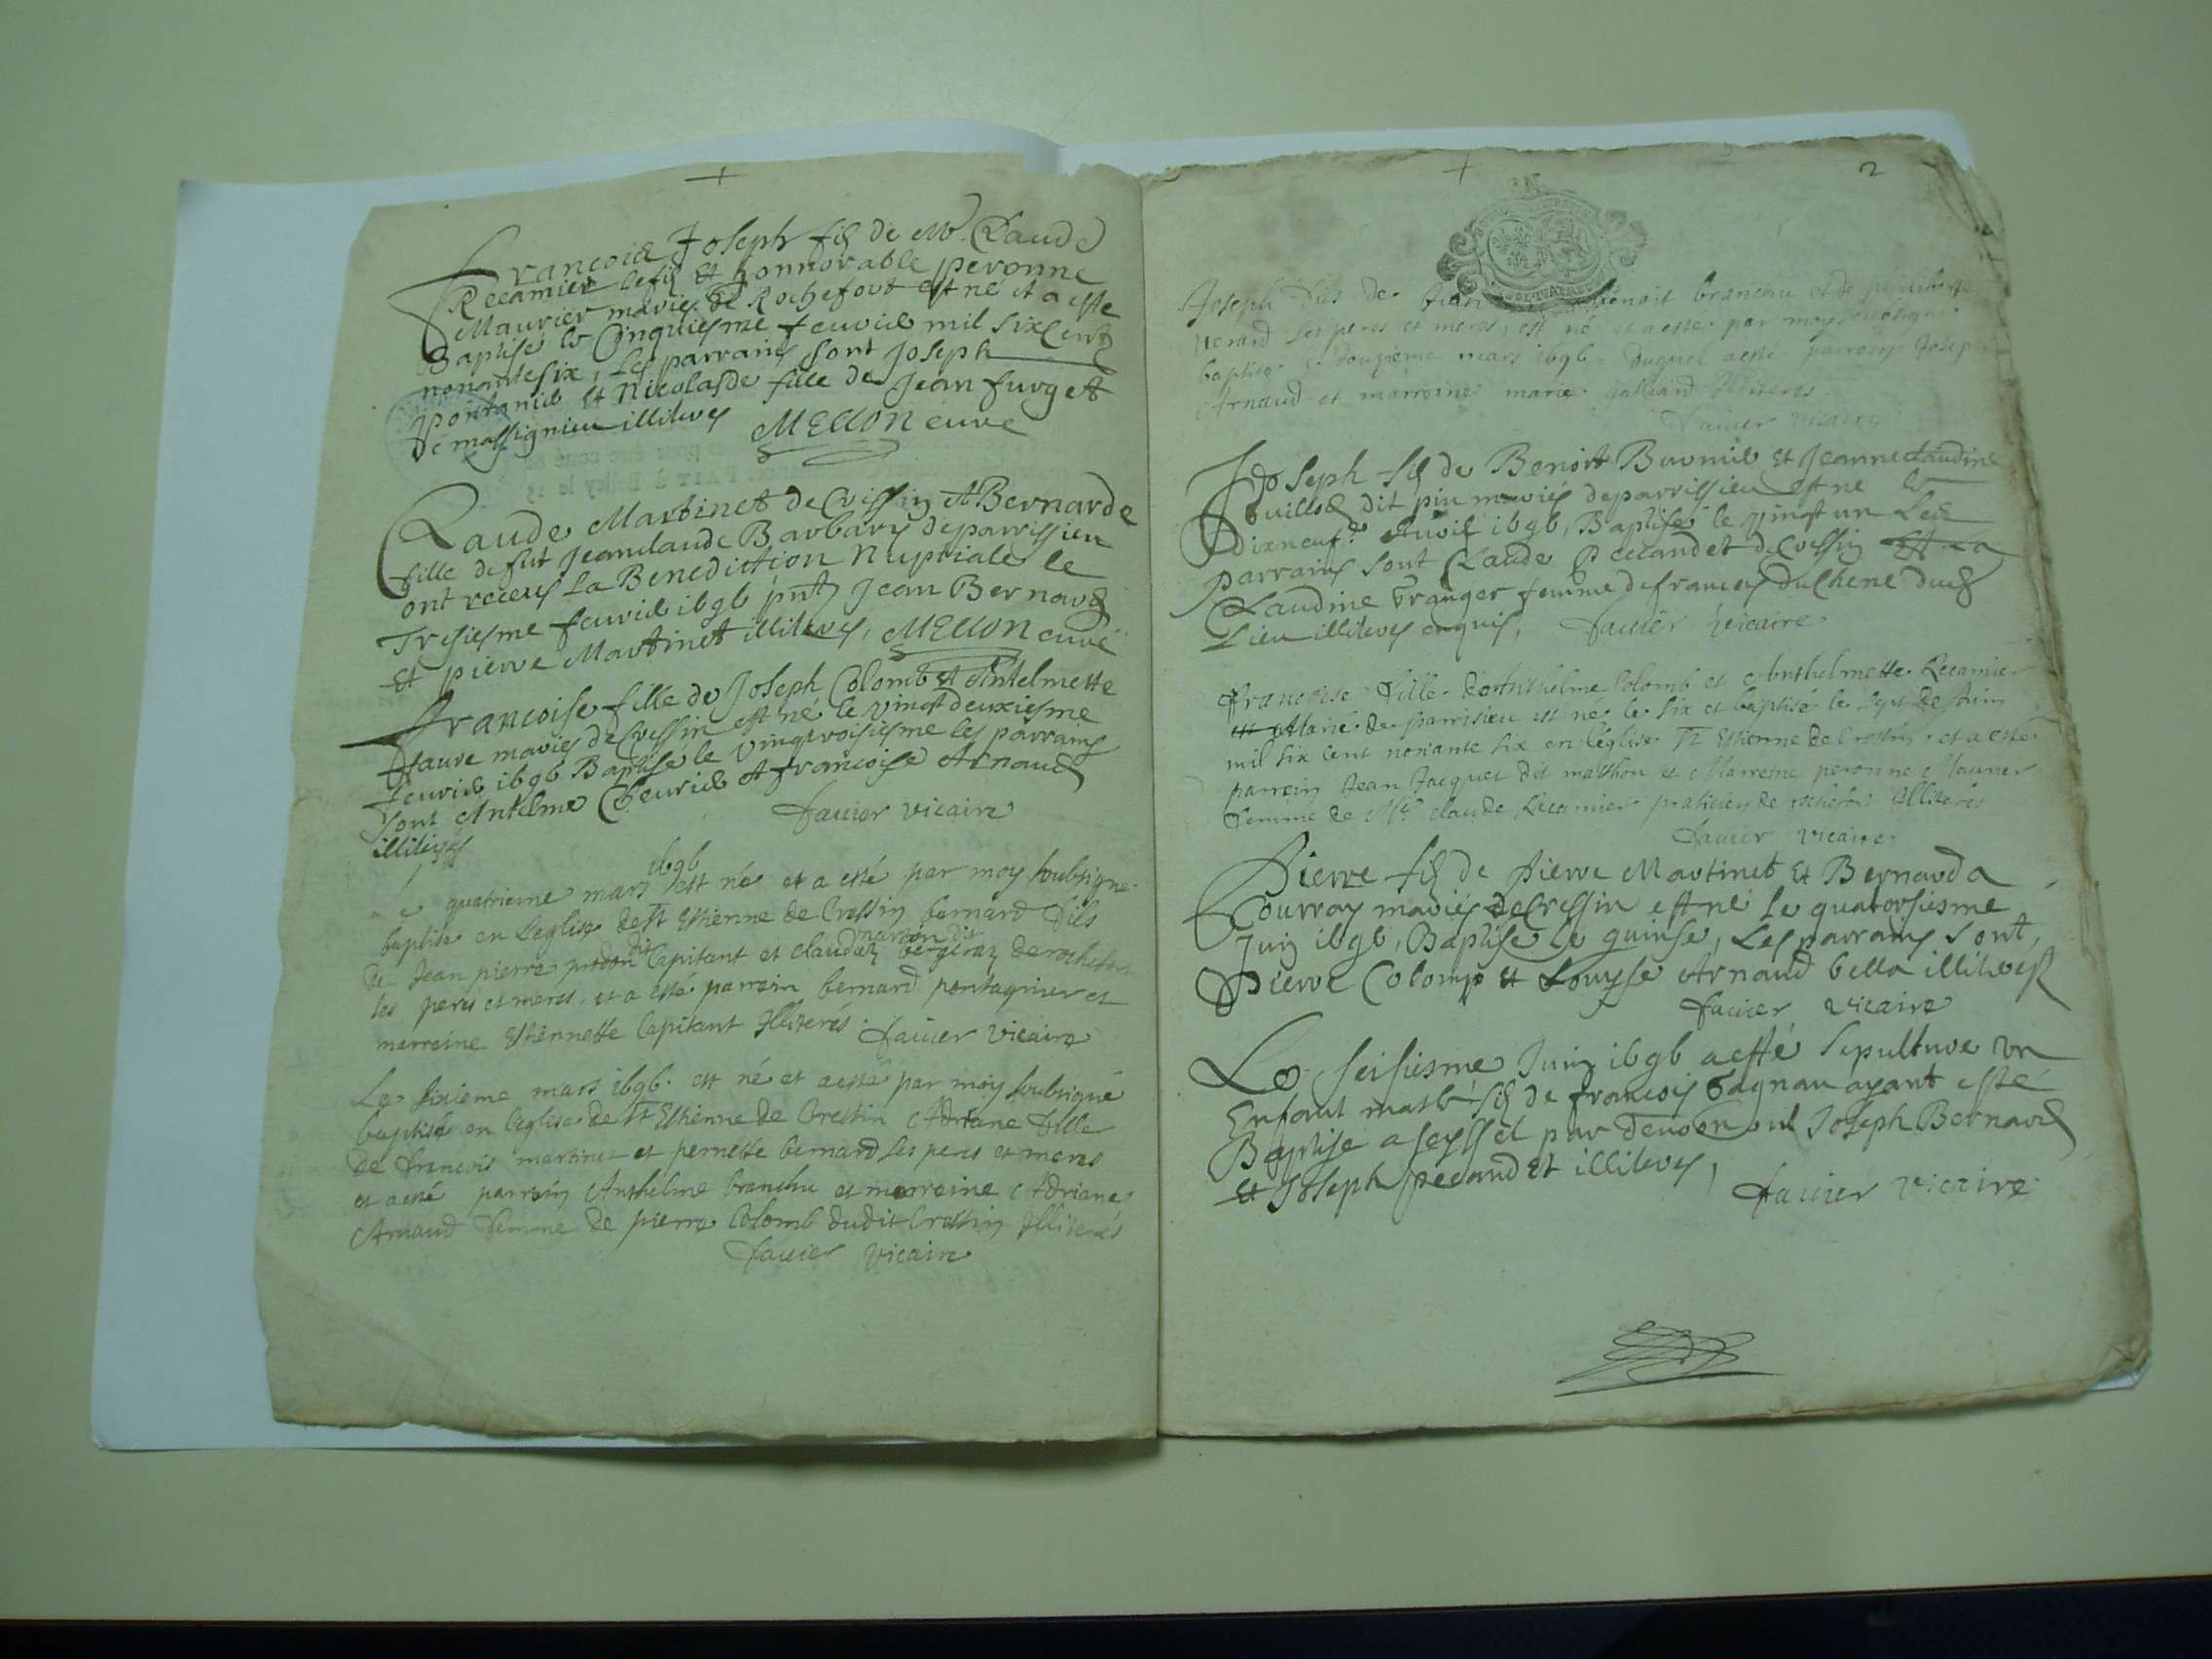 Francois Joseph fils de Mr. Claude
Recamier le fils et honnorable peronne
Maurier mariés de Rochefort est né et a esté
Baptisé le Cinquiesme feuvrier mil six cents
nonante six, Les parrains sont Joseph
pontanier et Nicolasde fille de Jean furget
de massignieu illiterés MELLON curé
Claude Martinet de Cressin et Bernarde
fille de fut Jeanclaude Barbary de parrissieu
ont receus La Benediction Nuptiale le
Tresiesme feuvrier 1696 pnts Jean Bernard
Et pierre Martinet illiterés, MELLON curé
Francoise fille de Joseph Colomb et Antelmette
faure mariés de Cressin est né le vingt deuxiesme
feuvrier 1696 Baptisé le vingtroisiesme les parrains
sont Antelme Cheurier et francoise Arnaud
illiterés favier vicaire
1696
quatrieme mars est né et a esté par moy soubsigné
baptisé en leglise de St Estienne de Cressin bernard fils
marion dit
de Jean pierre dit Capitant et claudaz bergeraz de rochefort
ses peres et meres, et a esté parrain bernard pontagnier et
marraine Estiennette Capitant Illiterés. favier vicaire
Le sixieme mars 1696. est né et a esté par moy soubsigné
baptisé en leglise de St Estienne de Cressin Adriane fille
de francois martinet et pernette bernard ses peres et meres
et a esté parrain Anthelme branchu et marraine Adriane
Arnaud femme de pierre Colomb dudit Cressin Illiterés
favier vicaire
2
Joseph fils de benoit branchu et de philiberte
verard ses peres et meres, est né et a esté par moy soubsigné
baptisé le douzieme mars 1696 duquel a esté parrain Joseph
Arnaud et marraine marie Illiteres
favier vicaire
Joseph fils de Benoit et Jeanneclaudine
dit pin mariés de parrissieu est né le
dixneufe Avril 1696, Baptisé le vingt un Les
parrains sont Claude Pecandet de Cressin Et La
Claudine Granger femme de francois du Chene dud
Lieu illiterés enquis, favier vicaire
francoise fille de Anthelme Colomb et Anthelmette Recamier
Mariés de parrisieu est née le six et baptisé le sept de Juin
mil six cent nonante six en l'eglise St Estienne de Cressin. et a esté
parrein Jean Jacquet dit matthon et Marreine peronne Maurier
femme de Mre claude Recamier praticien de rochefort Illiterés
favier vicaire.
Pierre fils de Pierre Martinet et Bernarda
Courray mariés de Cressin est né le quatorsiesme
Juin 1696, Baptisé le quinse, Les parrains sont,
Pierre Colomp et Louyse Arnaud bella illiterés
favier vicaire
Le seisiesme Juin 1696 a esté sepulturé un
Enfant masle fils de francois Gagnau ayant esté
Baptisé a seyssel par devotion Joseph Bernard
Et Joseph pecandet illiterés, favier vicaire